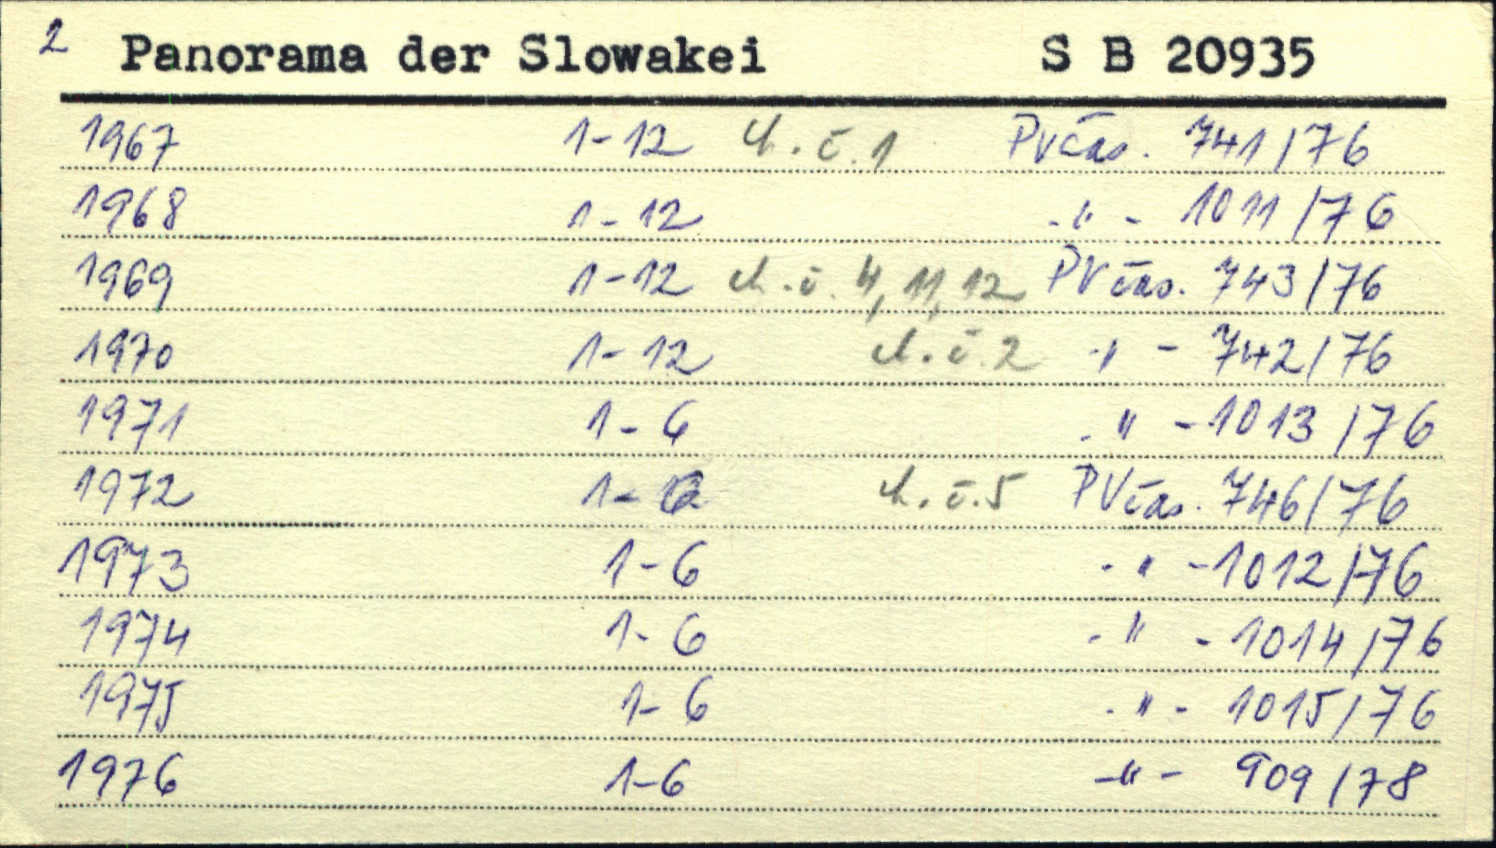 2 Panorama der Slowakei S B 20935
1967 1-12 ch.č.1 PVčas. 741/76
1968 1-12 -"- 1011/76
1969 1-12 ch.č. 4,11,12 PVčas. 743/76
1970 1-12 ch.č.2 -"- 742/76
1971 1-6 -"- 1013/76
1972 1-6 ch.č.5 PVčas. 746/76
1973 1-6 -"- 1012/76
1974 1-6 -"- 1014/76
1975 1-6 -"- 1015/76
1976 1-6 -"- 909/78